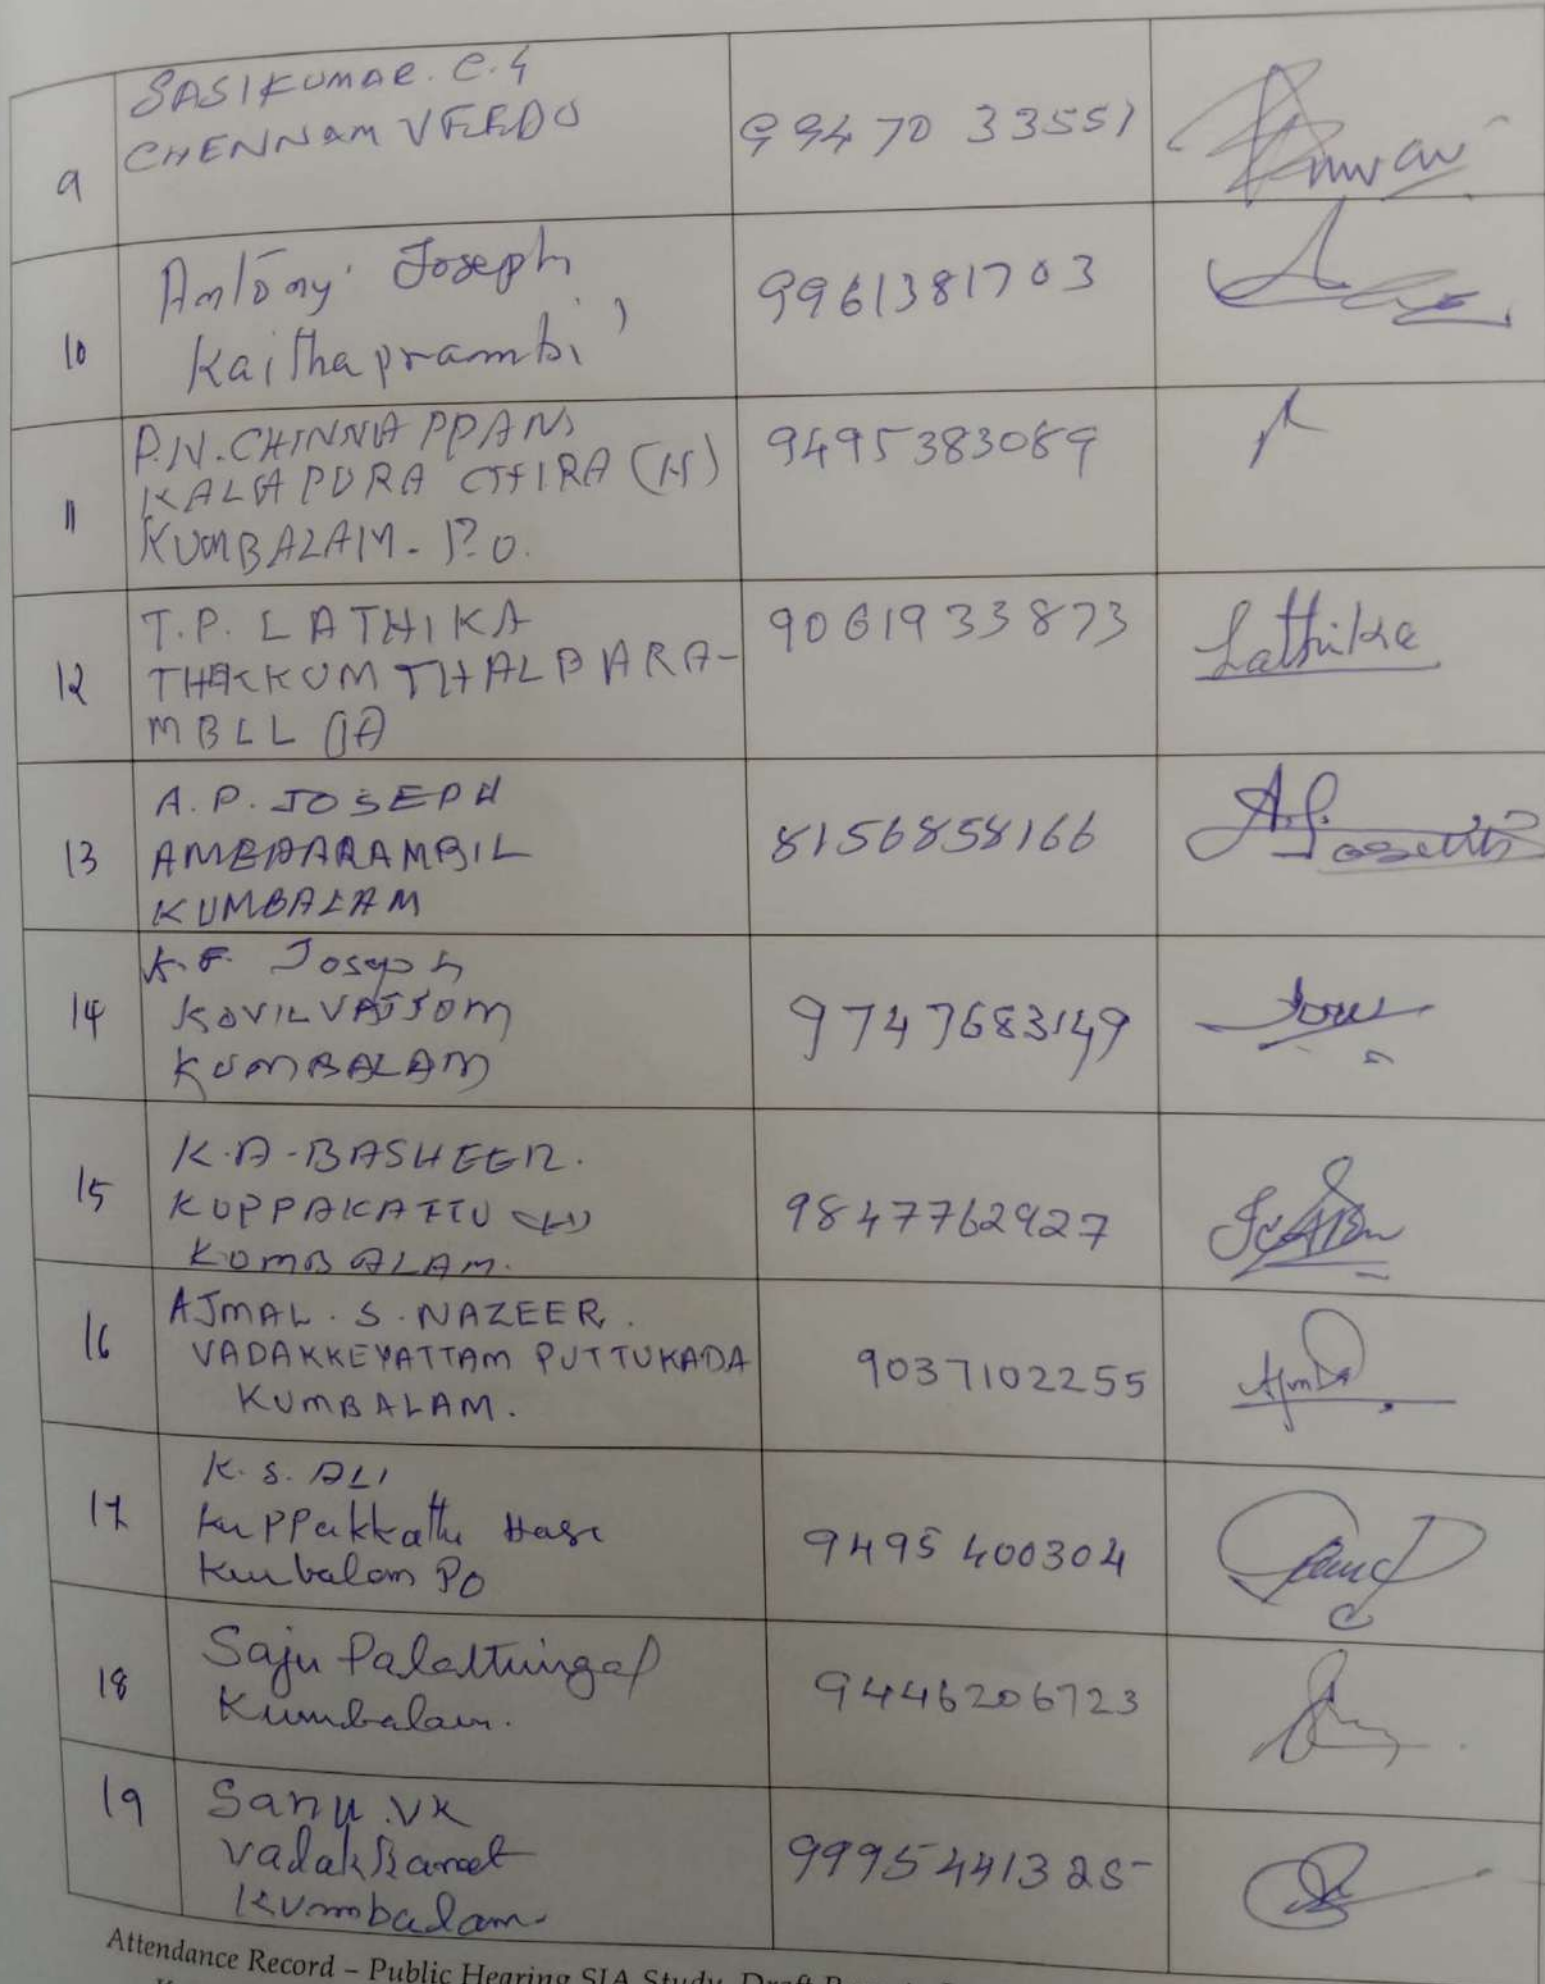 9
SASIKUMAR. C. G
CHENNAM VEEDU
99470 33551
10
Antony Joseph
Kaithaprambi
9961381703
11
P.N. CHINNAPPAN
KALAPURA CHIRA (H)
KUMBALAM - P.O.
9495383089
12
T.P. LATHIKA
THEKKUM THALPARA-
MBLL (H)
9061933873
Lathika
13
A. P. JOSEPH
AMBAPARAMBIL
KUMBALAM
8156858166
A.P. Joseph
14
K.F. Joseph
KOVILVATTOM
KUMBALAM
9747683149
15
K.A-BASHEER.
KUPPAKATTU (H)
KUMBALAM.
9847762927
16
AJMAL. S. NAZEER.
VADAKKEYATTAM PUTTUKADA
KUMBALAM.
9037102255
17
K. S. ALI
Kuppakkattu House
Kumbalam PO
9495 400304
18
Saju Palattuingal
Kumbalam.
9446206723
19
Sanu. VK
Vadakkanet
Kumbalam.
9995441325
Attendance Record – Public Hearing SIA Study